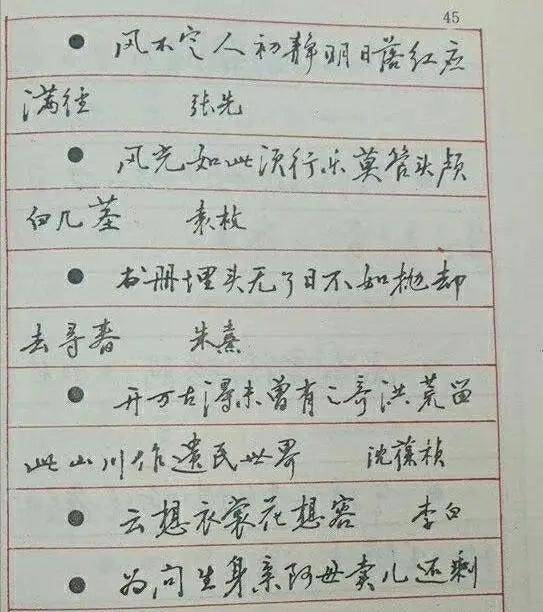 45
● 风不定人初静明日落红应
满径 张先
● 风光如此须行乐莫管头颅
白几茎 袁枚
● 书册埋头无了日不如抛却
去寻春 朱熹
● 开万古得未曾有之奇洪荒留
此山川作遗民世界 沈葆祯
● 云想衣裳花想容 李白
● 为问生身亲阿母卖儿还剩